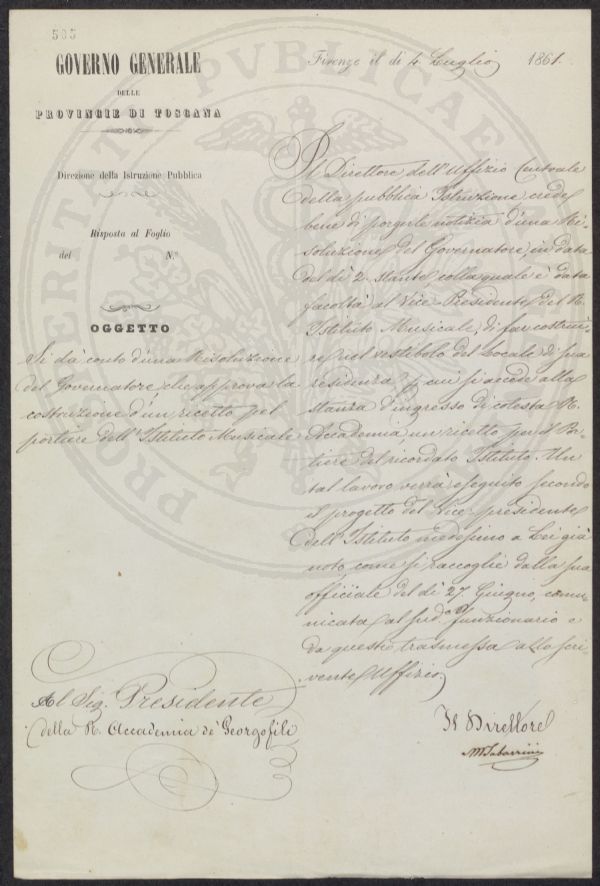 535
GOVERNO GENERALE
DELLE
PROVINCIE DI TOSCANA
Direzione della Istruzione Pubblica
Risposta al Foglio
del N.°
OGGETTO
Si dà conto d'una Risoluzione
del Governatore che approva la
costruzione d'un ricetto pel
portiere dell'Istituto Musicale
Al Sig. Presidente
della R. Accademia de' Georgofili
Firenze il dì 4 Luglio 1861.
Il Direttore dell'Uffizio Centrale
della pubblica Istruzione crede
bene di porgerle notizia d'una Ri-
soluzione del Governatore, in data
del dì 2. stante, colla quale è data
facoltà al Vice-Presidente del R.
Istituto Musicale, di far costrui-
re nel vestibolo del locale di sua
residenza, p cui si accede alla
stanza d'ingresso di cotesta R.
Accademia un ricetto per il Por-
tiere del ricordato Istituto. Un
tal lavoro verrà eseguito secondo
il progetto del Vice-presidente
dell'Istituto medesimo a Lei già
noto come si raccoglie dalla sua
officiale del dì 27. Giugno, comu-
nicata al sud.° funzionario e
da questi trasmessa allo scri-
vente Uffizio.
Il Direttore
M Tabarrini
PROSPERITATI PUBLICAE